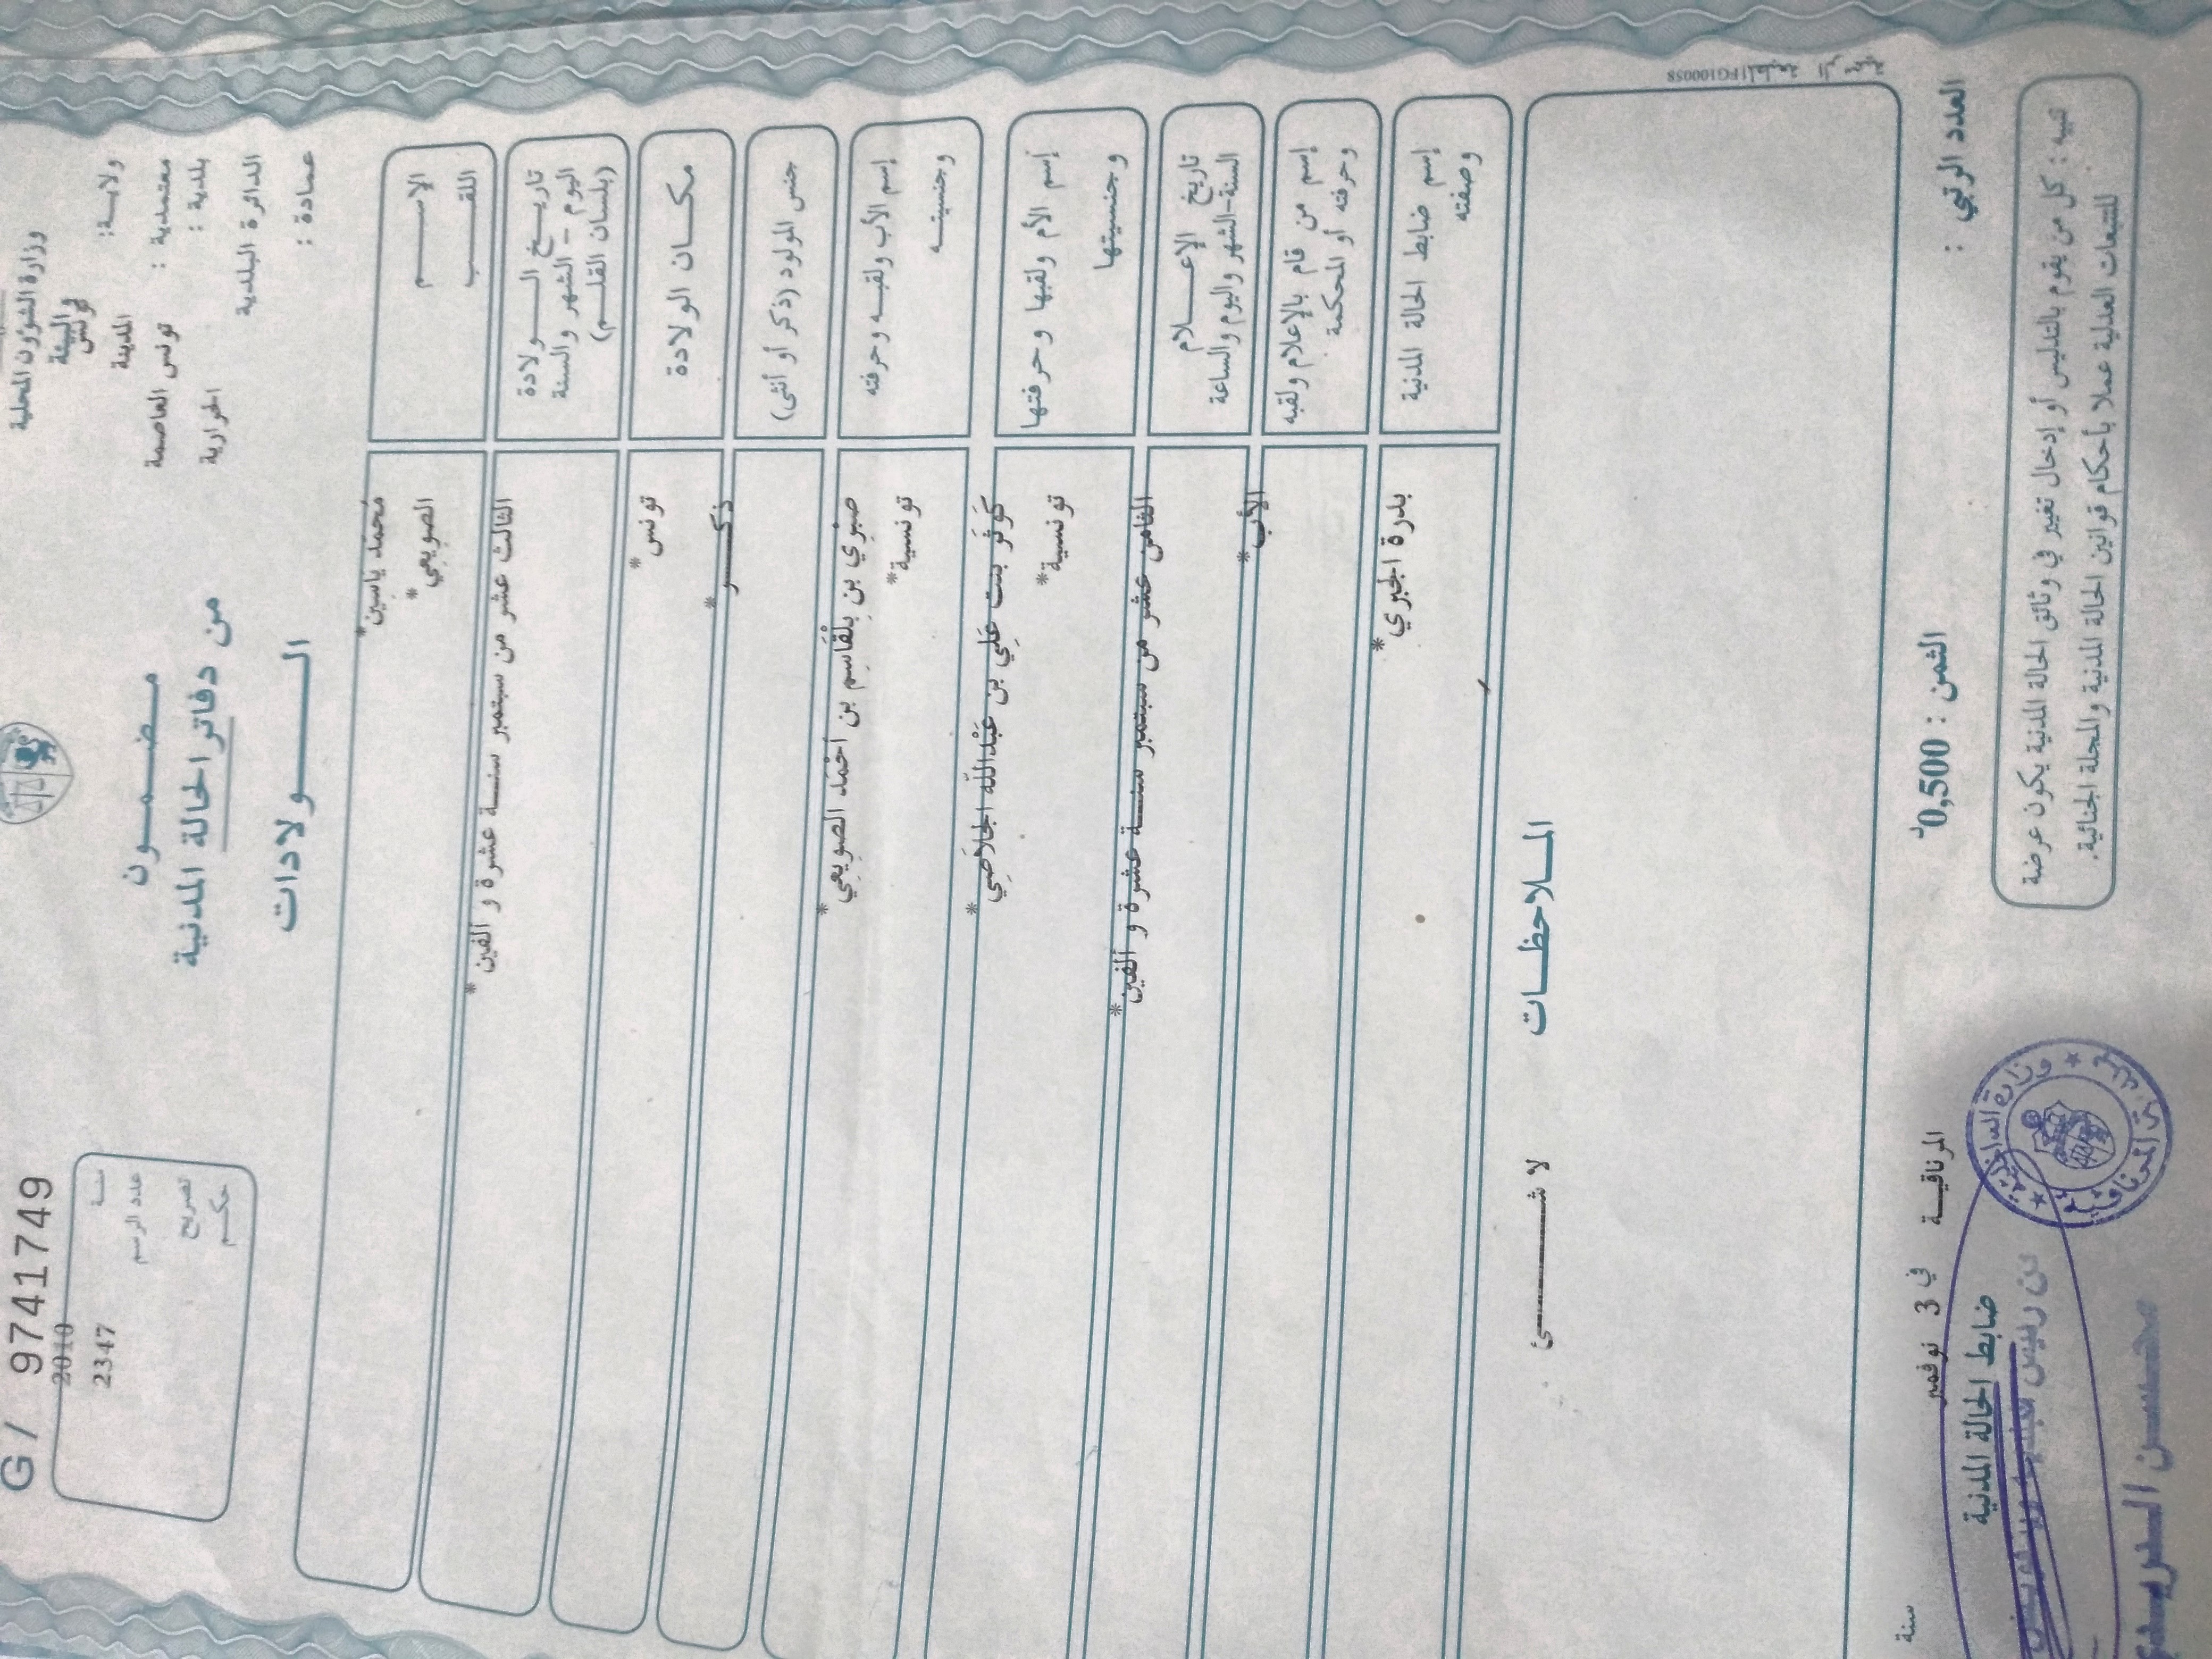 وزارة الشؤون المحلية
والبيئة
ولايــة: تونس
معتمدية : المدينة
بلدية : تونس العاصمة
الدائرة البلدية الحرارية
عمادة :
مـــضـــمـــون
من دفاتر الحالة المدنية
الـــــولادات
G/ 9741749
سنــة 2010
عدد الرسم 2347
تصريح
حكــم
الإســـــم محمد ياسين*
اللقـــــب الصويعي*
تاريــخ الـــــولادة
اليوم – الشهر والسنة
(بلسان القلــم)
الثالث عشر من سبتمبر سنــــة عشرة و ألفين*
مكـــان الولادة تونس*
جنس المولود (ذكر أو أنثى) ذكـــــر*
إسم الأب ولقبــه وحرفته صبري بن بلقاسم بن أحمد الصويعي*
وجنسيتــه تونسية*
إسم الأم ولقبها وحرفتها كوثر بنت علي بن عبدالله الجلاصي*
وجنسيتها تونسية*
تاريخ الإعـــــلام
السنة-الشهر واليوم والساعة
الثامن عشر من سبتمبر سنــــة عشرة و ألفين*
إسم من قام بالإعلام ولقبه
وحرفته أو المحكمة
الأب*
إسم ضابط الحالة المدنية
وصفته
بدرة الجبري*
المـــلاحظـــات
لا شـــــــئ
العدد الرتبي :
الثمن : 0,500د
المرناقيــة في 3 نوفمبر سنة
ضابط الحالة المدنية
تنبيه : كل من يقوم بالتدليس أو إدخال تغيير في وثائق الحالة المدنية يكون عرضة
للتتبعات العدلية عملا بأحكام قوانين الحالة المدنية والمجلة الجنائية.